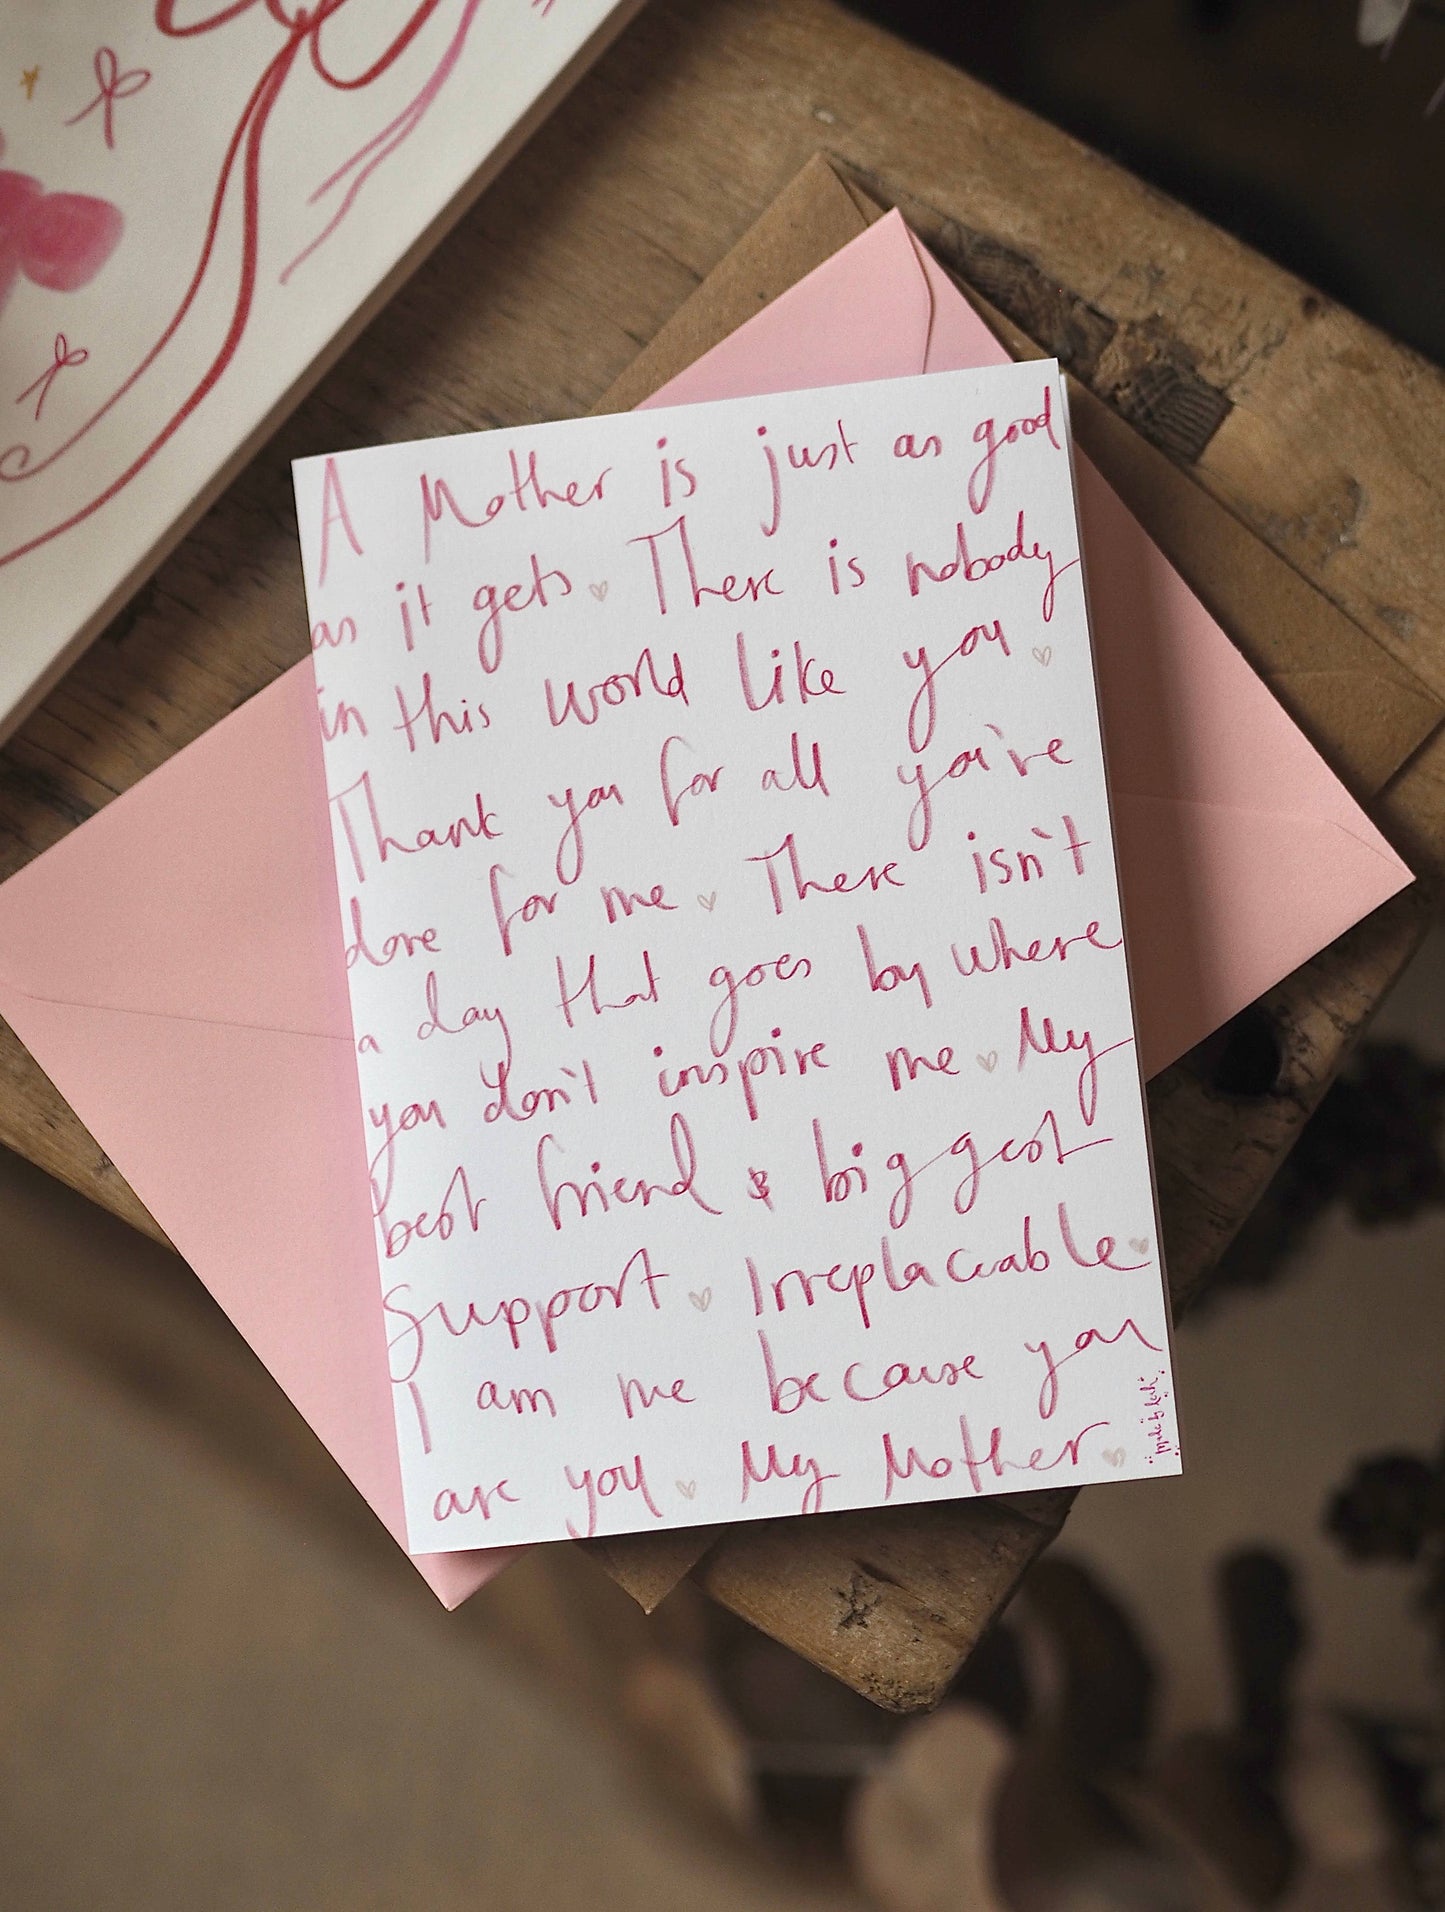 A Mother is just as good
as it gets ♡ There is nobody
in this world like you ♡
Thank you for all you've
done for me ♡ There isn't
a day that goes by where
you don't inspire me ♡ My
best friend & biggest
Support ♡ Irreplaceable ♡
I am me because you
are you ♡ My Mother ♡
made by Leah